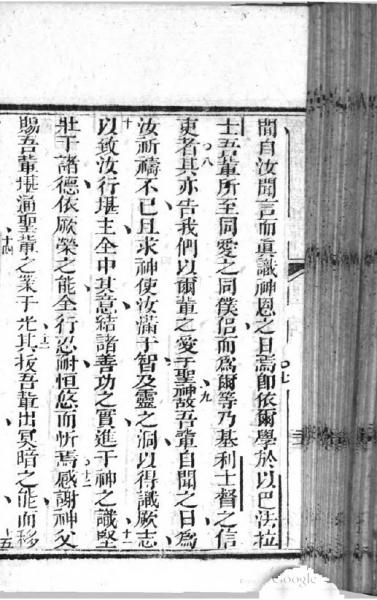 間自汝聞言而眞識神恩之日焉七卽依爾學於以巴法拉
士吾輩所至同愛之同僕侶而爲爾等乃基利士督之信
吏者八其亦告我們以爾輩之愛于聖神九故吾輩自聞之日爲
汝祈禱不已且求神使汝滿于智及靈之洞以得識厥志
十以致汝行堪主全中其意結諸善功之實進于神之識十一堅
壯于諸德依厥榮之能全行忍耐恒悠而忻焉十二感謝神父
賜吾輩堪通聖輩之業于光十三其拔吾輩出冥暗之能而移
十四
十五
Google